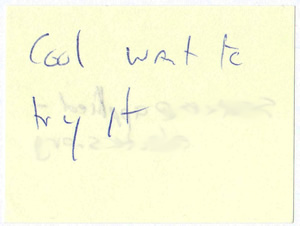 Cool want to
try it